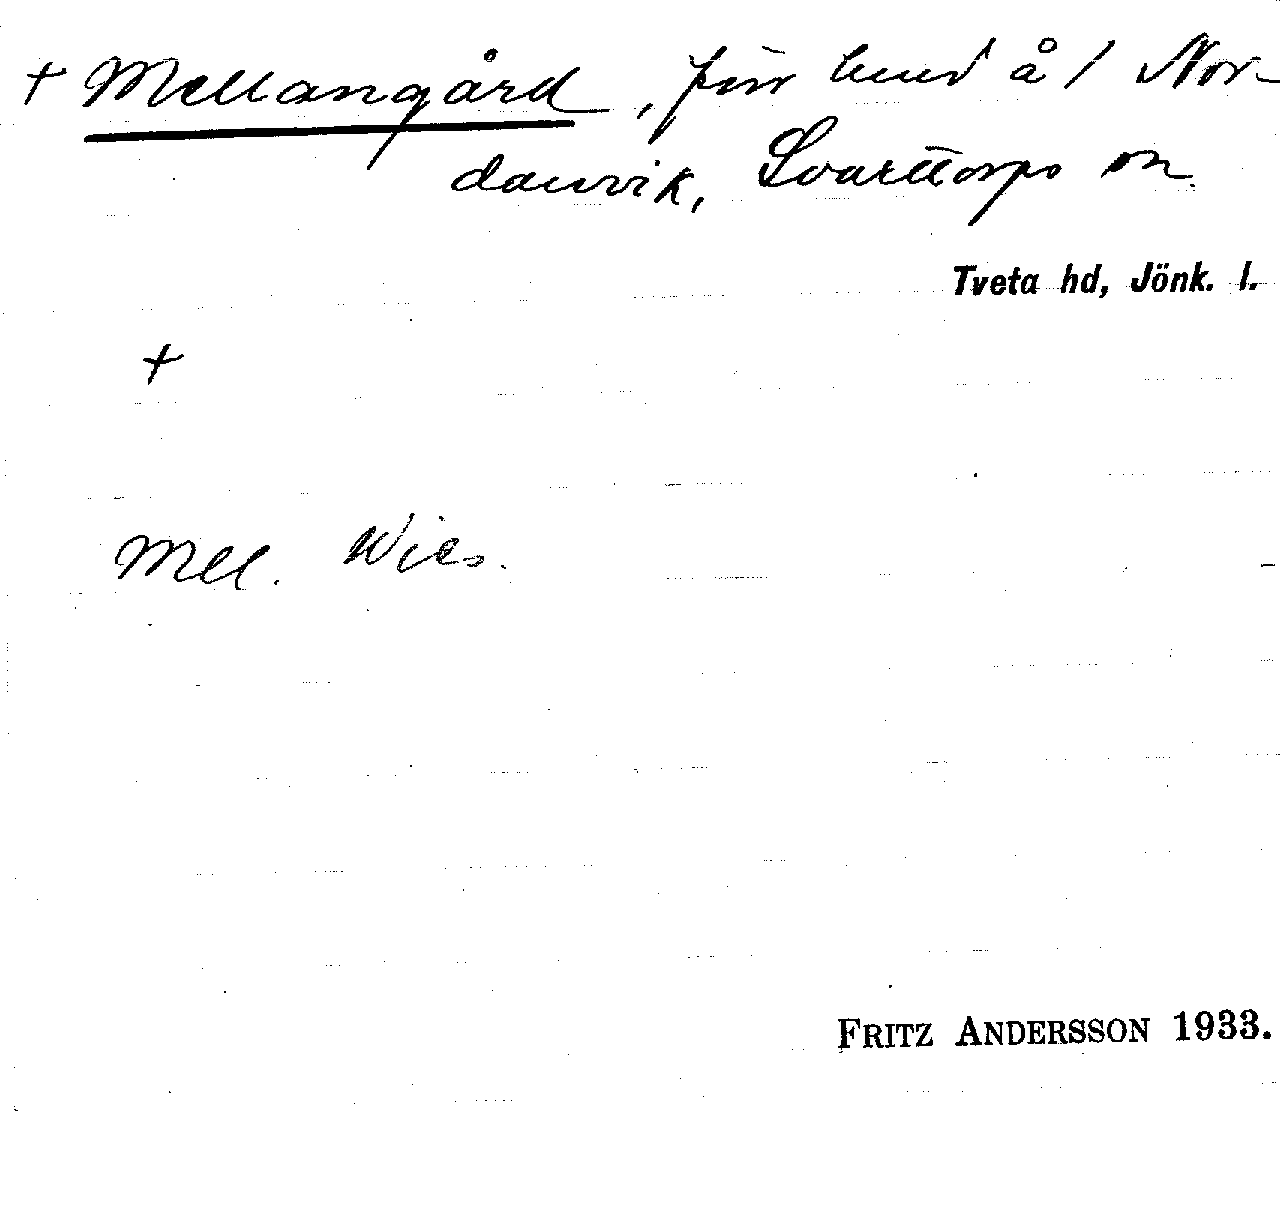 + Mellangård, förr hmd å 1 Nor-
danvik, Svarttorps sn
Tveta hd, Jönk. l.
+
Mell. Wies.
FRITZ ANDERSSON 1933.